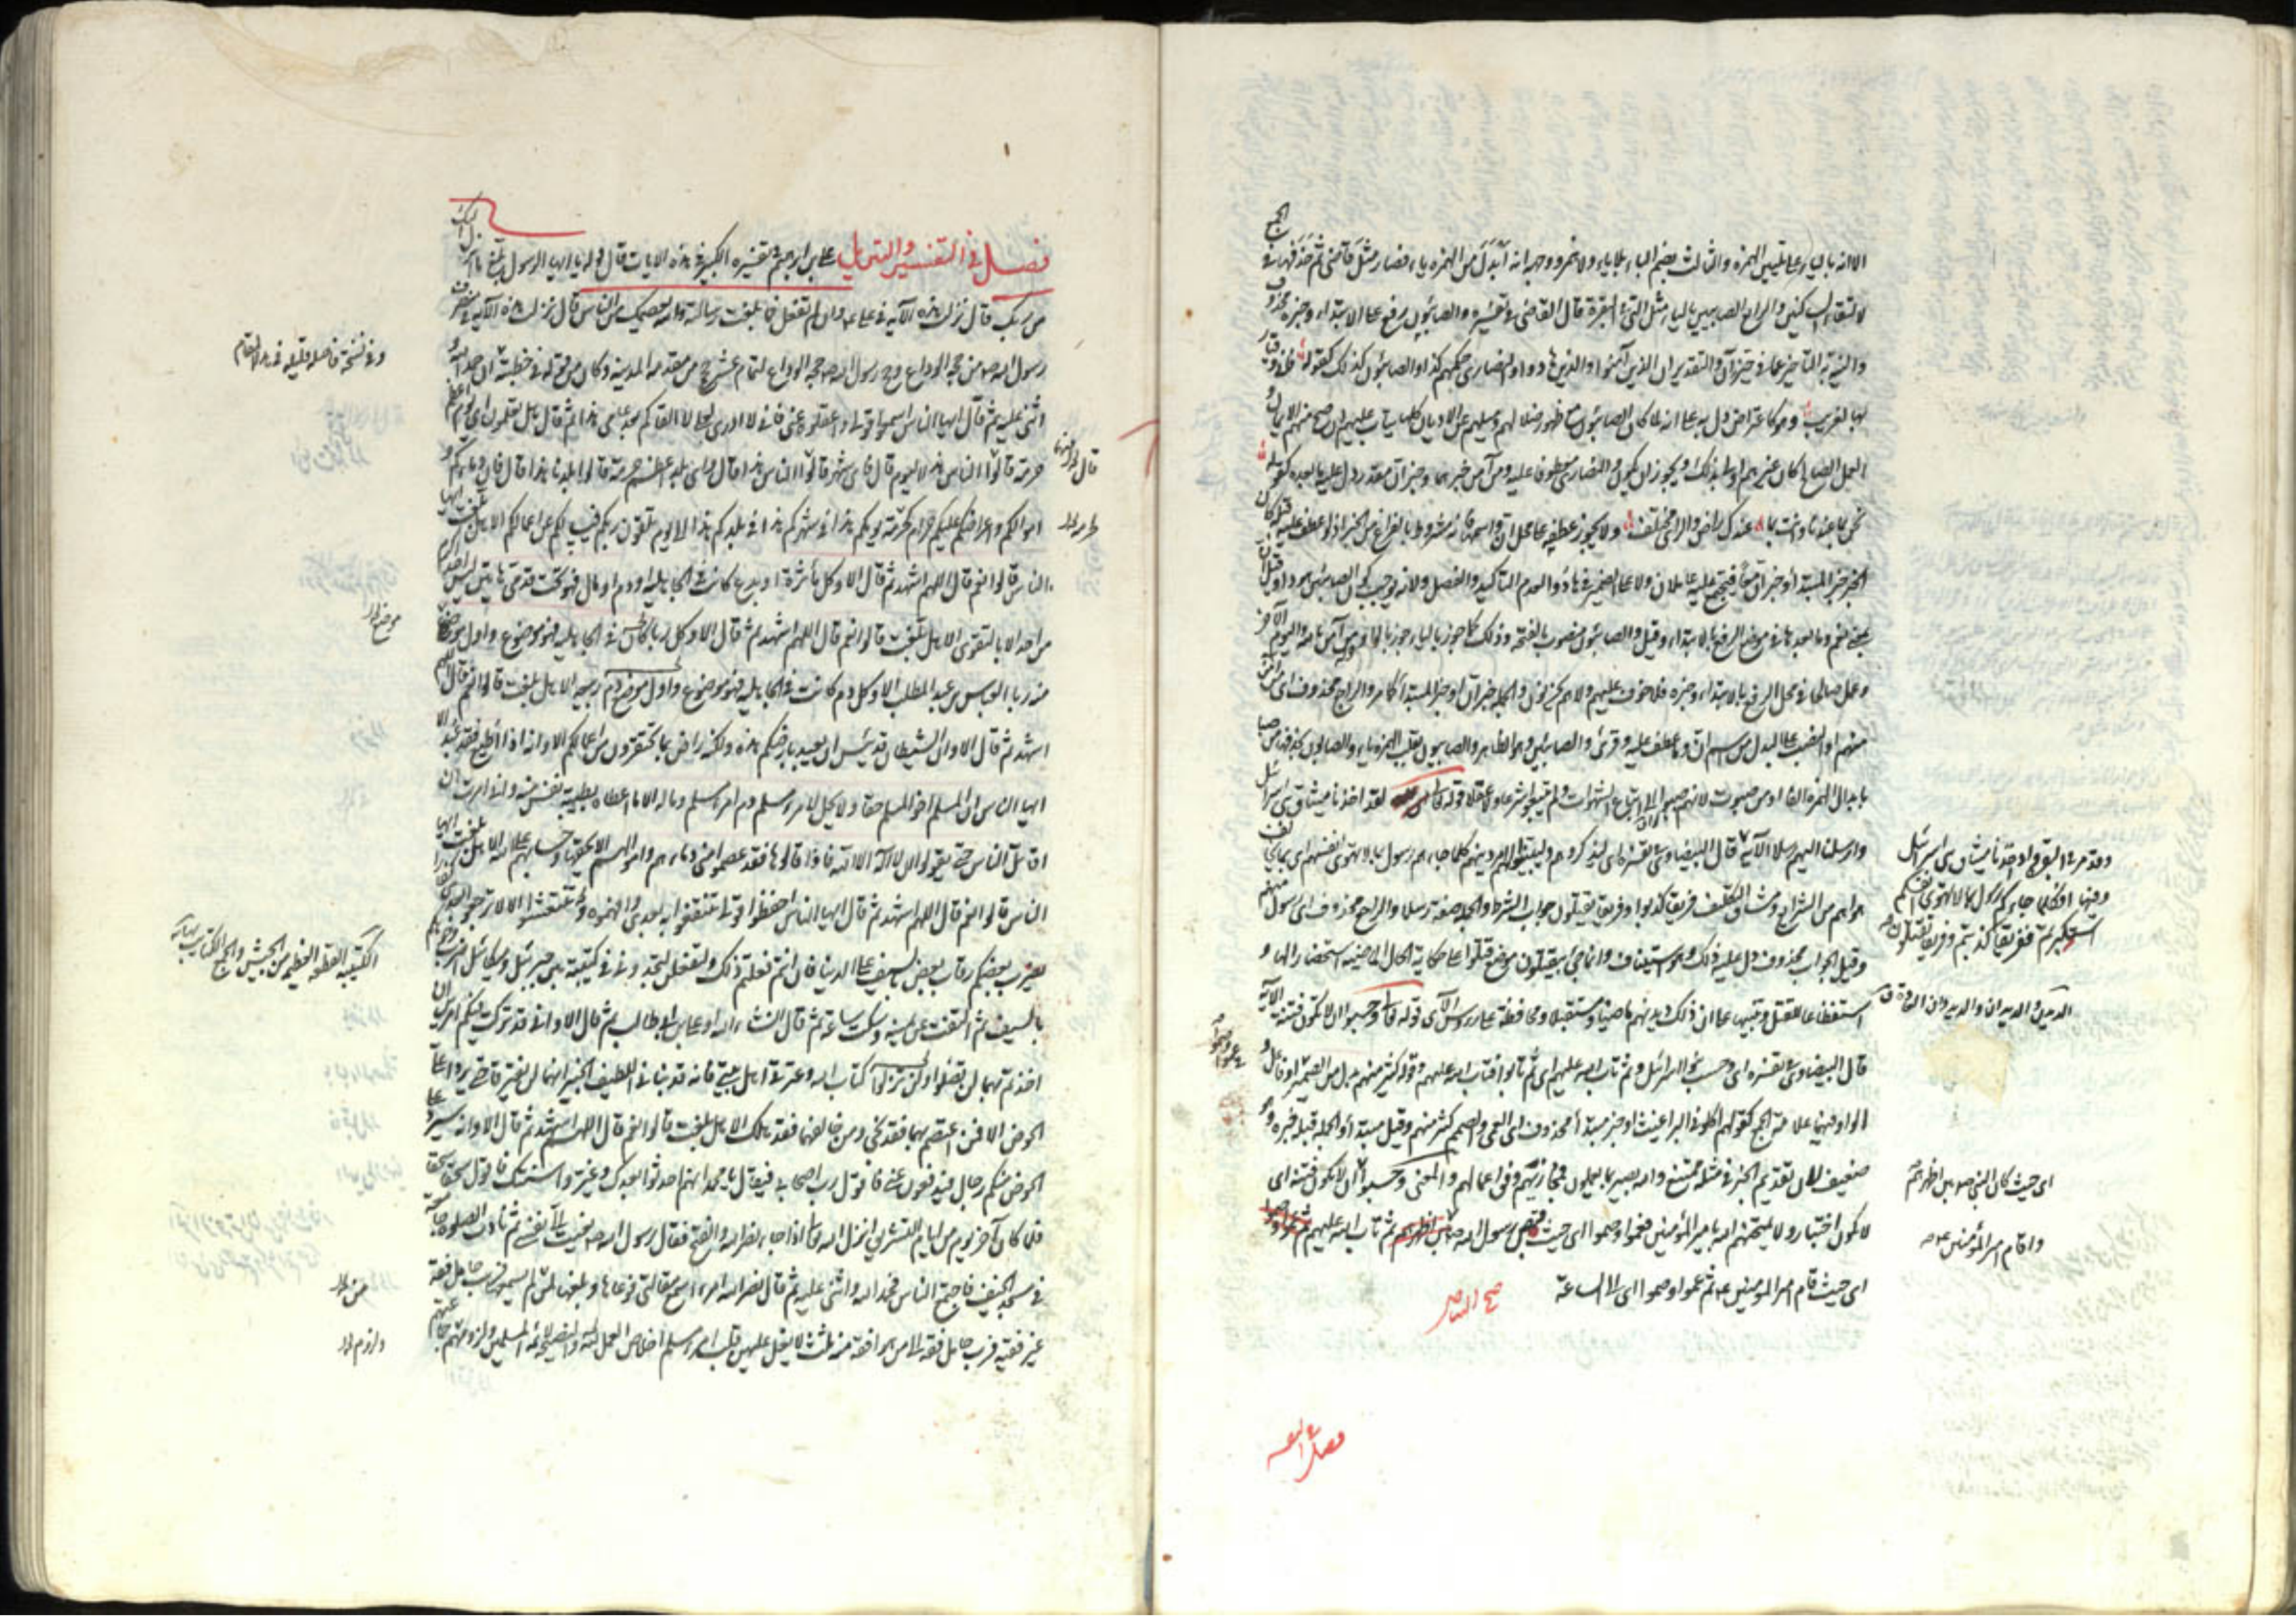 الا انه بالياء على تليين الهمزة والثالث بضم الباء بلا ياء ولا همز ووجهه انه أبدل من الهمزة ياء فصار مثل قاضى ثم حذفها في الجمع
لالتقاء الساكنين والرابع الصابيين بالياء مثل التي في البقرة قال القاضى في تفسيره والصابئون رفع على الابتداء وخبره محذوف
والنية به التأخير عما في حيز ان والتقدير ان الذين آمنوا والذين هادوا والنصارى حكمهم كذا والصابئون كذلك كقوله فانى وقيار
بها لغريب وهو كاعتراض دل به على انه لما كان الصابئون مع ظهور ضلالهم وميلهم عن الاديان كلها يتاب عليهم ان صح منهم الايمان و
العمل الصالح كان غيرهم اولى بذلك ويجوز ان يكون والنصارى معطوفا عليه ومن آمن خبرهما وخبر ان مقدر دل عليه ما بعده كقوله
نحن بما عندنا وانت بما عندك راض والراى مختلف ولا يجوز عطفه على محل ان واسمها فانه مشروط بالفراغ من الخبر اذ لو عطف عليه قبله كان
الخبر خبر المبتدا وخبر ان معا فيجتمع عليه عاملان ولا على الضمير في هادوا لعدم التأكيد والفصل ولانه يوجب كون الصابئين هودا وقيل ان
بمعنى نعم وما بعدها في موضع الرفع بالابتداء وقيل والصابئون منصوب بالفتحة وذلك كما جوز بالياء جوز بالواو من آمن بالله واليوم الآخر
وعمل صالحا في محل الرفع بالابتداء وخبره فلا خوف عليهم ولا هم يحزنون والجملة خبر ان او خبر المبتدا كما مر والراجع محذوف اى من آمن
منهم او النصب على البدل من اسم ان وما عطف عليه وقرئ والصابئين وهو الظاهر والصابيون بقلب الهمزة ياء والصابون بحذفها من صبا
بابدال الهمزة الفا او من صبوت لانهم صبوا الى اتباع الشهوات ولم يتبعوا شرعا ولا عقلا قوله تعالى لقد اخذنا ميثاق بنى اسرائيل
وارسلنا اليهم رسلا الآية قال البيضاوى في تفسيره اى ليذكروهم وليبينوا لهم امر دينهم كلما جاءهم رسول بما لا تهوى انفسهم اى بما يخالف
هواهم من الشرايع ومشاق التكليف فريقا كذبوا وفريقا يقتلون جواب الشرط والجملة صفة رسلا والراجع محذوف اى رسول منهم
وقيل الجواب محذوف دل عليه ذلك وهو استيناف وانما جئ بيقتلون موضع قتلوا على حكاية الحال الماضية استحضارا لها و
استفظاعا للقتل وتنبيها على ان ذلك ديدنهم ماضيا ومستقبلا ومحافظة على رؤس الآى قوله تعالى وحسبوا ان لا تكون فتنة الآية
قال البيضاوى في تفسيره اى وحسب بنو اسرائيل ثم تاب الله عليهم اى ثم تابوا فتاب الله عليهم وقوله كثير منهم بدل من الضمير او فاعل و
الواو فيهما علامة الجمع كقولهم اكلونى البراغيث او خبر مبتدأ محذوف اى العمى والصم كثير منهم وقيل مبتدأ والجملة قبله خبره وهو
ضعيف لان تقديم الخبر في مثله ممتنع والله بصير بما يعملون فيجازيهم وفق اعمالهم والمعنى وحسبوا ان لا تكون فتنة اى
لا تكون اختبار ولا يمتحنهم الله بامير المؤمنين فعموا وصموا اى حيث قبض رسول الله ثم تاب الله عليهم
اى حيث قام امير المؤمنين ثم عموا وصموا الى الساعة
وقد مر في البقرة واذ اخذنا ميثاق بنى اسرائيل
وفيها افكلما جاءكم رسول بما لا تهوى انفسكم
استكبرتم ففريقا كذبتم وفريقا تقتلون
الديدن والديدان
اى حيث كان النبى بين اظهرهم
واقام امير المؤمنين
فصل في التفسير والتاويل على بن ابراهيم في تفسيره الكبير في هذه الايات قال قوله يا ايها الرسول بلغ ما انزل اليك
من ربك قال نزلت هذه الآية في على وان لم تفعل فما بلغت رسالته والله يعصمك من الناس قال نزلت هذه الآية في منصرف
رسول الله من حجة الوداع وحج رسول الله حجة الوداع لتمام عشر حجج من مقدمه المدينة وكان من قوله في خطبته ان حمد الله و
اثنى عليه ثم قال ايها الناس اسمعوا قولى واعقلوه عنى فانى لا ادرى لعلى لا القاكم بعد عامى هذا ثم قال هل تعلمون اى يوم اعظم
حرمة قالوا الناس هذا اليوم قال فاى شهر قالوا الناس هذا قال واى بلد اعظم حرمة قالوا بلدنا هذا قال فان دماءكم و
اموالكم واعراضكم عليكم حرام كحرمة يومكم هذا في شهركم هذا في بلدكم هذا الى يوم تلقون ربكم فيسألكم عن اعمالكم الا هل بلغت ايها
الناس قالوا نعم قال اللهم اشهد ثم قال الا وكل مأثرة او بدع كانت في الجاهلية او دم او مال فهو تحت قدمى هاتين ليس احد اكرم
من احد الا بالتقوى الا هل بلغت قالوا نعم قال اللهم اشهد ثم قال الا وكل ربا كان في الجاهلية فهو موضوع واول موضوع
منه ربا العباس بن عبد المطلب الا وكل دم كانت في الجاهلية فهو موضوع واول موضوع دم ربيعة الا هل بلغت قالوا نعم قال اللهم
اشهد ثم قال الا وان الشيطان قد يئس ان يعبد بارضكم هذه ولكنه راض بما تحتقرون من اعمالكم الا وانه اذا اطيع فقد عبد الا
ايها الناس ان المسلم اخو المسلم حقا ولا يحل لامرء مسلم دم امرء مسلم وماله الا ما اعطاه بطيبة نفس منه وانى امرت ان
اقاتل الناس حتى يقولوا لا اله الا الله فاذا قالوها فقد عصموا منى دماءهم واموالهم الا بحقها وحسابهم على الله الا هل بلغت ايها
الناس قالوا نعم قال اللهم اشهد ثم قال ايها الناس احفظوا قولى تنتفعوا به بعدى وافهموه تنتعشوا الا لا ترجعوا بعدى كفارا
يضرب بعضكم رقاب بعض بالسيف على الدنيا فان انتم فعلتم ذلك ولتفعلن لتجدونى في كتيبة بين جبرئيل وميكائيل اضرب وجوهكم
بالسيف ثم التفت عن يمينه وسكت ساعة ثم قال ان شاء الله او على بن ابى طالب ثم قال الا وانى قد تركت فيكم امرين ان
اخذتم بهما لن تضلوا ولن تزلوا كتاب الله وعترتى اهل بيتى فانه قد نبأنى اللطيف الخبير انهما لن يفترقا حتى يردا على
الحوض الا فمن اعتصم بهما فقد نجى ومن خالفهما فقد هلك الا هل بلغت قالوا نعم قال اللهم اشهد ثم قال الا وانه سيرد على
الحوض منكم رجال فيدفعون عنى فاقول رب اصحابى فيقال يا محمد انهم احدثوا بعدك وغيروا سنتك فاقول سحقا سحقا
فلما كان آخر يوم من ايام التشريق انزل الله تعالى اذا جاء نصر الله والفتح فقال رسول الله نعيت الى نفسى ثم نادى الصلوة جامعة
في مسجد الخيف فاجتمع الناس فحمد الله واثنى عليه ثم قال نصر الله امرءا سمع مقالتى فوعاها وبلغها لمن لم يسمعها فرب حامل فقه
غير فقيه ورب حامل فقه الى من هو افقه منه ثلث لا يغل عليهن قلب امرء مسلم اخلاص العمل لله والنصيحة لائمة المسلمين ولزوم جماعتهم
وفى نسخة
في هذا المقام
موضوع
الكتيبة القطعة العظيمة من الجيش والجمع الكتائب